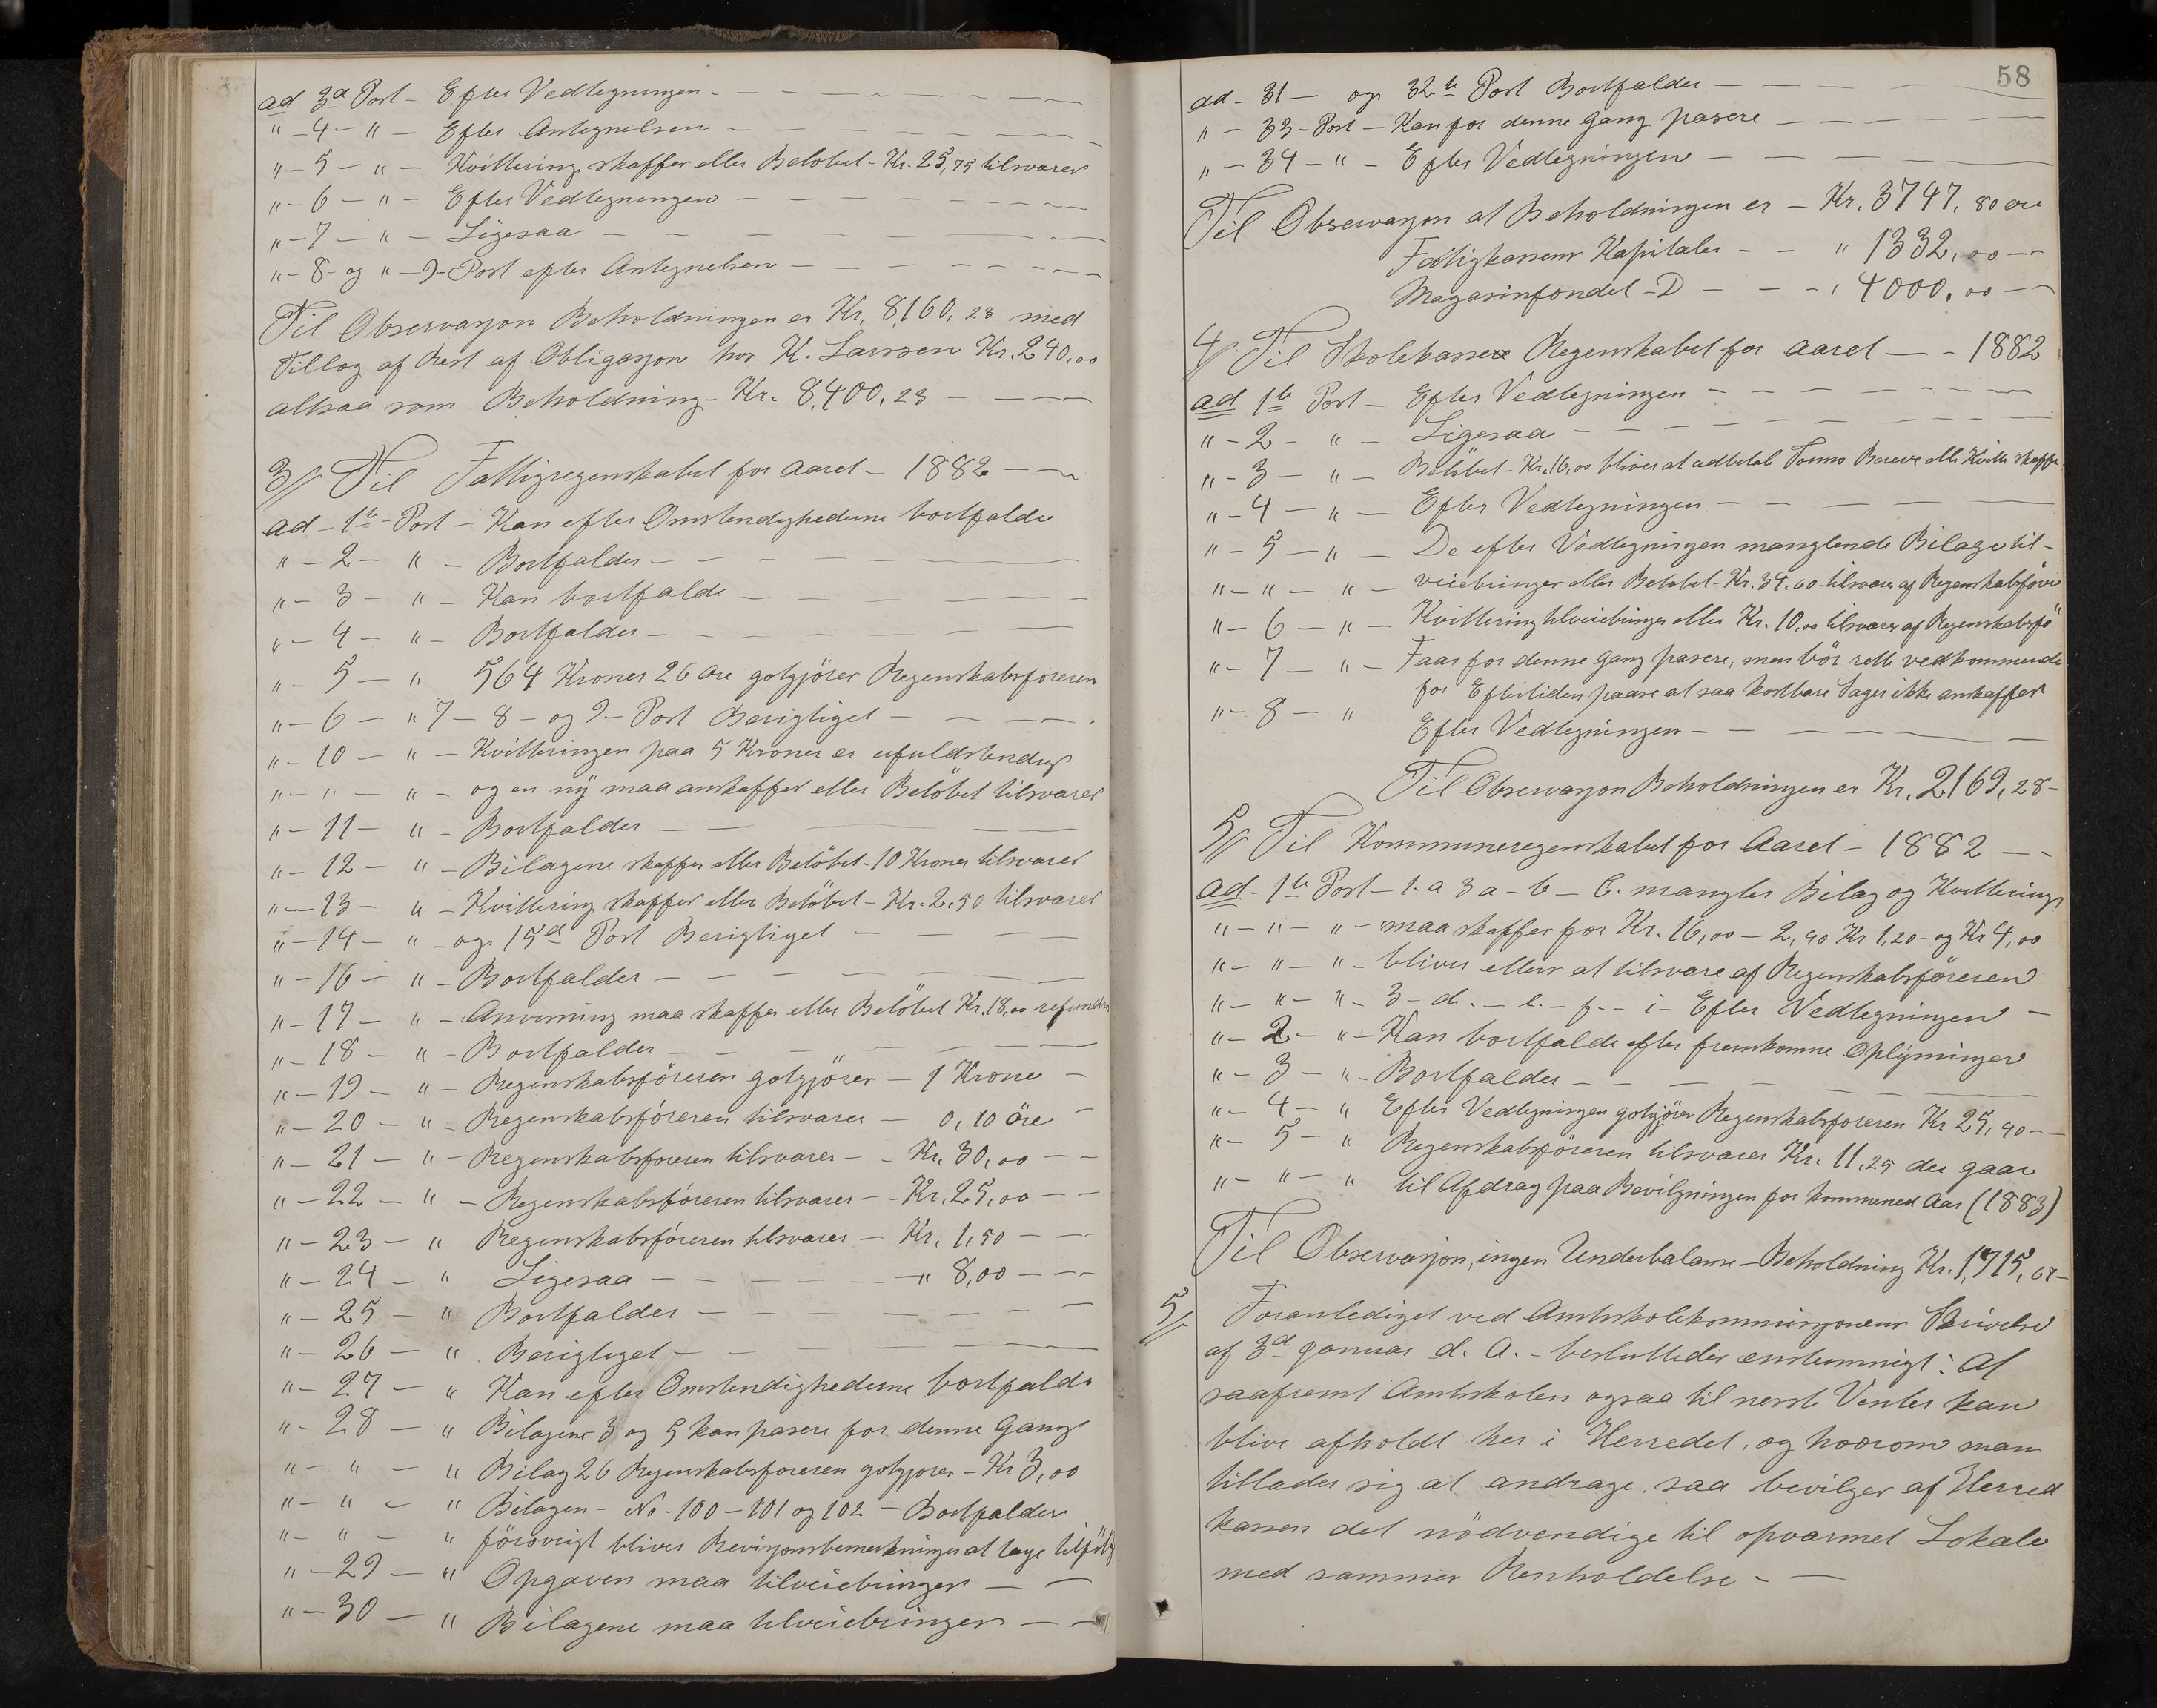 ad 3d Post - Efter Vedtegningen - - - - -
" - 4 - " - Efter Antegnelsen - - - - -
" - 5 - " - Kvittering skaffes eller Beløbet - Kr. 25,75 tilsvares
" - 6 - " - Efter Vedtegningen - - - - -
" - 7 - " - Ligesaa - - - - -
" - 8 - og " - 9 - Post efter Antegnelsen - - - - -
Til Observasjon Beholdningen er Kr. 8,160,23 med
Tillæg af Rest af Obligasjon hos K. Larssen Kr. 240,00
altsaa som Beholdning - Kr. 8,400,23 - - -
3// Til Fattigregenskabet for Aaret - 1882 - -
ad - 1te Post - Kan efter Omstendighederne bortfalde
" - 2 - " - Bortfalder - - - - -
" - 3 - " - Kan bortfalde - - - - -
" - 4 - " - Bortfalder - - - - -
" - 5 - " 564 Kroner 26 øre gotgjöres Regenskabsföreren
" - 6 - " 7 - 8 - og 9 - Post Berigtiget - - - -
" - 10 - " - Kvitteringen paa 5 Kroner er ufuldstendig
" - " - " - og en nÿ maa anskaffes eller Belöbet tilsvares
" - 11 - " - Bortfalder - - - -
" - 12 - " - Bilagene skaffes eller Belöbet - 10 Kroner tilsvares
" - 13 - " - Kvittering skaffes eller Belöbet - Kr. 2,50 tilsvares
" - 14 - " - og 15d Post Berigtiget - - - -
" - 16 - " - Bortfalder - - - - -
" - 17 - " - Anvisning maa skaffes eller Belöbet Kr. 18,00
" - 18 - " - Bortfalder - - - - -
" - 19 - " - Regenskabsföreren gotgjöres - 1 Krone -
" - 20 - " - Regenskabsföreren tilsvarer - 0,10 öre -
" - 21 - " - Regenskabsföreren tilsvarer - - Kr. 30,00 - -
" - 22 - " - Regenskabsföreren tilsvarer - - Kr. 25,00 - -
" - 23 - " Regenskabsföreren tilsvarer - Kr. 1,50 - -
" - 24 - " Ligesaa - - - - " 8,00 - - -
" - 25 - " Bortfalder - - - - -
" - 26 - " Berigtiget - - - -
" - 27 - " Kan efter Omstendighederne bortfalde
" - 28 - " Bilagene 3 og 5 kan pasere for denne Gang
" - " - " Bilag 26 Regenskabsföreren gotgjöres - Kr 3,00
" - " - " Bilagen - No - 100 - 101 og 102 - Bortfalder
" - " - " förövrigt bliver Revisjonsbemerkninger at tage tilfölg
" - 29 - " Opgaven maa tilveiebringes - -
" - 30 - " Bilagene maa tilveiebringes - -
58
ad - 31 - og 32te Post Bortfalder - - - -
" - 33 - Post - Kan for denne Gang pasere - - - -
" - 34 - " - Efter Vedtegningen - - - -
Til Observasjon at Beholdningen er - Kr. 3747,80 øre
Fattigkassens Kapitaler - - " 1332,00 - -
Magasinfondet - D - - - " 4000,00 - -
4// Til Skolekasse Regenskabet for Aaret - - 1882
ad 1te Post - Efter Vedtegningen - - - - -
" - 2 - " - Ligesaa - - - - -
" - 3 - " - Belöbet - Kr. 16,00 bliver at udbetale eller
" - 4 - " - Efter Vedtegningen - - - -
" - 5 - " - De efter Vedtegningen manglende Bilage til-
" - " - " - veiebringes eller Belobet - Kr. 34,60 tilsvares af Regenskabsföre
" - 6 - " - Kvittering tilveiebringes eller Kr. 10,00 tilsvares af Regenskabsfö
" - 7 - " - Faar for denne Gang pasere, men bör rette vedkommende
for Eftertiden paase at saa kostbare Sager ikke anskaffes
" - 8 - " Efter Vedtegningen - - - - -
Til Observasjon Beholdningen er Kr. 2169,28 -
5// Til Kommuneregenskabet for Aaret - 1882 - -
ad - 1te Post - 1. a 3 a - b - C. mangler Bilag og Kvittering
" - " - " - maa skaffes for Kr. 16,00 - 2,40 Kr 1,20 - og Kr 4,00
" - " - " - bliver ellers at tilsvare af Regenskabsföreren
" - " - " - 3 - d. - e. - f. - i - Efter Vedtegningen -
" - 2 - " - Kan bortfalde efter fremkomne Oplÿsninger
" - 3 - " - Bortfalder - - - - -
" - 4 - " Efter Vedtegningen gotgjöres Regenskabsföreren Kr 25,40 - -
" - 5 - " Regenskabsföreren tilsvarer Kr. 11,29 der gaar
" - " - " til Afdrag paa Bevilgningen for kommened Aar (1883)
Til Observasjon, ingen Underbalanse - Beholdning Kr. 1,715,67 -
5// Foranlediget ved Amtsskolekommisjonens Skrivelse
af 3d Januar d. A. - besluttedes enstemmigt: At
saafremt Amtskolen ogsaa til neste Venter kan
blive afholdt her i Herredet, og hvorom man
tillader sig at andrage, saa bevilges af Herred
kassen det nödvendige til opvarmet Lokale
med sammes Renholdelse - -